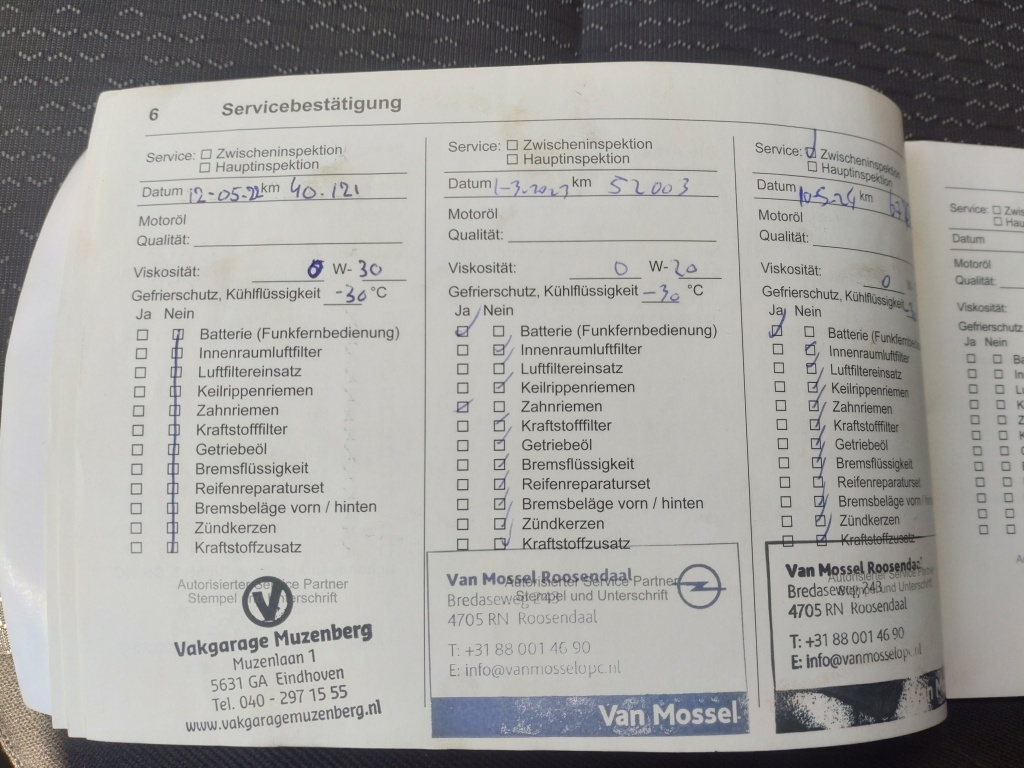 6 Servicebestätigung
Service: Zwischeninspektion
Hauptinspektion
Datum 12-05-22 km 40.121
Motoröl
Qualität:
Viskosität: 0 W-30
Gefrierschutz, Kühlflüssigkeit -30 °C
Ja Nein
Batterie (Funkfernbedienung)
Innenraumluftfilter
Luftfiltereinsatz
Keilrippenriemen
Zahnriemen
Kraftstofffilter
Getriebeöl
Bremsflüssigkeit
Reifenreparaturset
Bremsbeläge vorn / hinten
Zündkerzen
Kraftstoffzusatz
Autorisierter Service Partner
Stempel und Unterschrift
V
Vakgarage Muzenberg
Muzenlaan 1
5631 GA Eindhoven
Tel. 040 - 297 15 55
www.vakgaragemuzenberg.nl
Service: Zwischeninspektion
Hauptinspektion
Datum 1-3-2023 km 52003
Motoröl
Qualität:
Viskosität: 0 W-20
Gefrierschutz, Kühlflüssigkeit -30 °C
Ja Nein
Batterie (Funkfernbedienung)
Innenraumluftfilter
Luftfiltereinsatz
Keilrippenriemen
Zahnriemen
Kraftstofffilter
Getriebeöl
Bremsflüssigkeit
Reifenreparaturset
Bremsbeläge vorn / hinten
Zündkerzen
Kraftstoffzusatz
Autorisierter Service Partner
Stempel und Unterschrift
Van Mossel Roosendaal
Bredaseweg 243
4705 RN Roosendaal
T: +31 88 001 46 90
E: info@vanmosselopc.nl
Van Mossel
Service: Zwischeninspektion
Hauptinspektion
Datum 10-5-24 km
Motoröl
Qualität:
Viskosität: 0
Gefrierschutz, Kühlflüssigkeit
Ja Nein
Batterie
Innenraumluftfilter
Luftfiltereinsatz
Keilrippenriemen
Zahnriemen
Kraftstofffilter
Getriebeöl
Bremsflüssigkeit
Reifenreparaturset
Bremsbeläge vorn
Zündkerzen
Kraftstoffzusatz
Autorisierter Service Partner
Stempel und Unterschrift
Van Mossel Roosendaal
Bredaseweg 243
4705 RN Roosendaal
T: +31 88 001 46 90
E: info@vanmosselopc.nl
Service:
Datum
Motoröl
Qualität:
Viskosität:
Gefrierschutz
Ja Nein